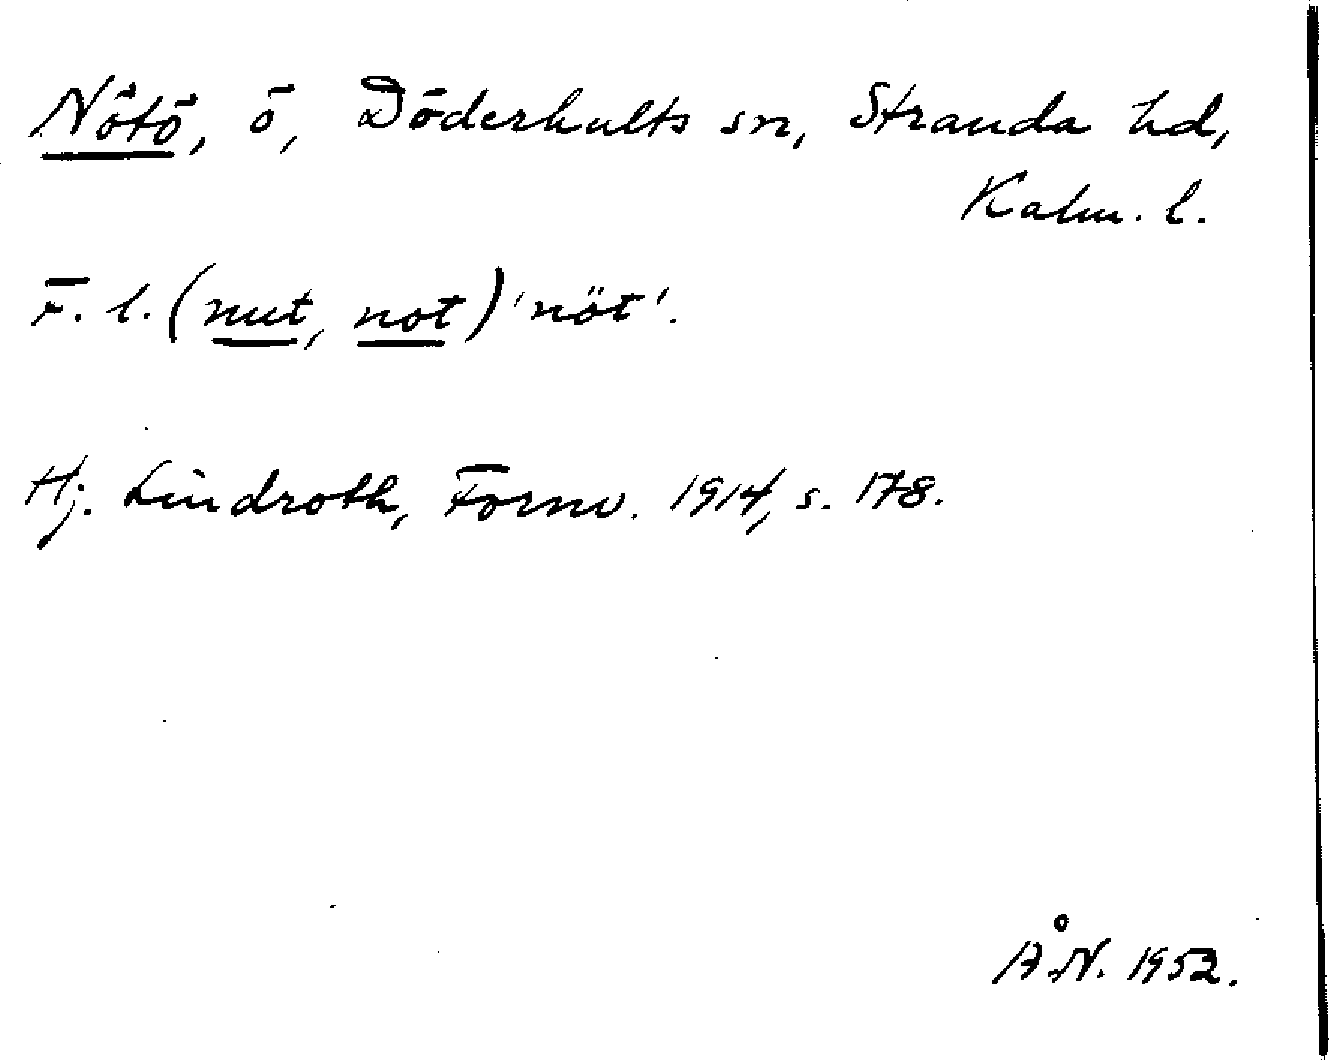 Nötö, ö, Döderhults sn, Stranda hd,
Kalm. l.
F. l. (nut, not) 'nöt'.
Hj. Lindroth, Fornv. 1914, s. 178.
Å.N. 1952.